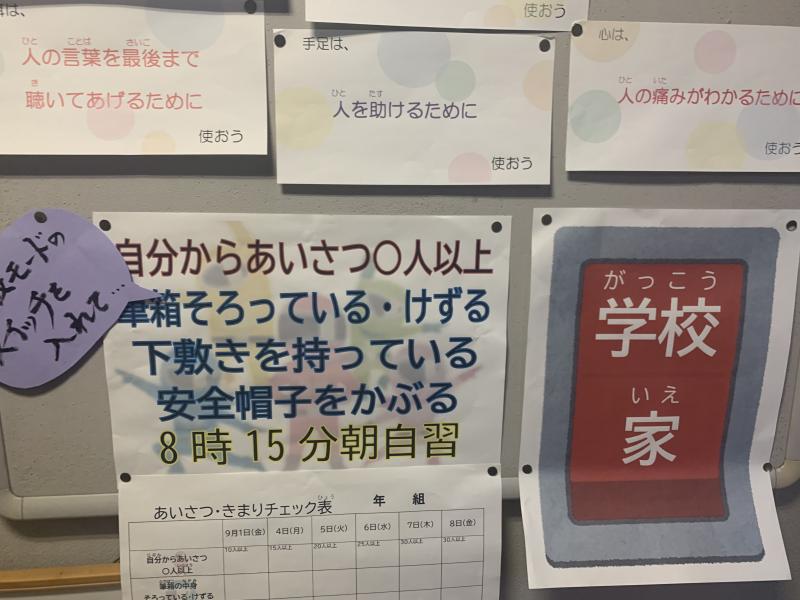 は、
人の言葉を最後まで
聴いてあげるために
使おう
使おう
手足は、
人を助けるために
使おう
心は、
人の痛みがわかるために
使おう
モードの
スイッチを
入れて…
自分からあいさつ〇人以上
筆箱そろっている・けずる
下敷きを持っている
安全帽子をかぶる
8時15分朝自習
がっこう
学校
いえ
家
あいさつ・きまりチェック表 年 組
9月1日(金) 4日(月) 5日(火) 6日(水) 7日(木) 8日(金)
自分からあいさつ
〇人以上
10人以上 15人以上 20人以上 25人以上 30人以上 30人以上
筆箱の中身
そろっている・けずる